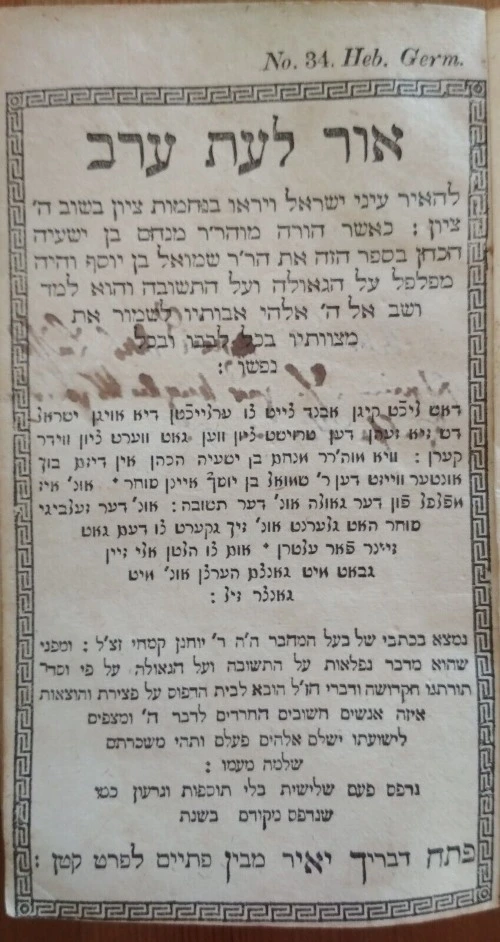 No. 34. Heb. Germ.
אור לעת ערב
להאיר עיני ישראל ויראו בנחמות ציון בשוב ה'
ציון : כאשר הורה מוהר'ר מנחם בן ישעיה
הכהן בספר הזה את הר'ר שמואל בן יוסף והיה
מפלפל על הגאולה ועל התשובה והוא למד
ושב אל ה' אלהי אבותיו לשמור את
מצוותיו בכל לבבו ובכל
נפשו :
דאש ליכט קיגן אבנד צייט צו ערלייכטן דיא אויגן ישראל
דש זיא זעהן דען טרוישט ציון ווען גאט ווערט ציון ווידר
קערן : וויא מוה'רר מנחם בן ישעיה הכהן אין דיזם בוך
אונטער ווייזט דען ר' שמואל בן יוסף איינן סוחר * אונ' איז
מפלפל פון דער גאולה אונ' דער תשובה : אונ' דער זעלביגי
סוחר האט גלערנט אונ' זיך בקערט צו דעם גאט
זיינר פאר עלטרן * אום צו הלטן אלי זיין
גבאט מיט גאנצם הערצן אונ' מיט
גאנצר זיל :
נמצא בכתבי של בעל המחבר ה'ה ר' יוחנן קמחי זצ'ל : ומפני
שהוא מדבר נפלאות על התשובה ועל הגאולה על פי וסדר
תורתנו הקדושה ודברי חז'ל הובא לבית הדפוס על פצירת והוצאות
איזה אנשים חשובים החרדים לדבר ה' ומצפים
לישועתו ישלם אלהים פעלם ותהי משכרתם
שלמה מעמו :
נדפס פעם שלישית בלי תוספות וגרעון כמו
שנדפס מקודם בשנת
פתח דבריך יאיר מבין פתיים לפרט קטן :